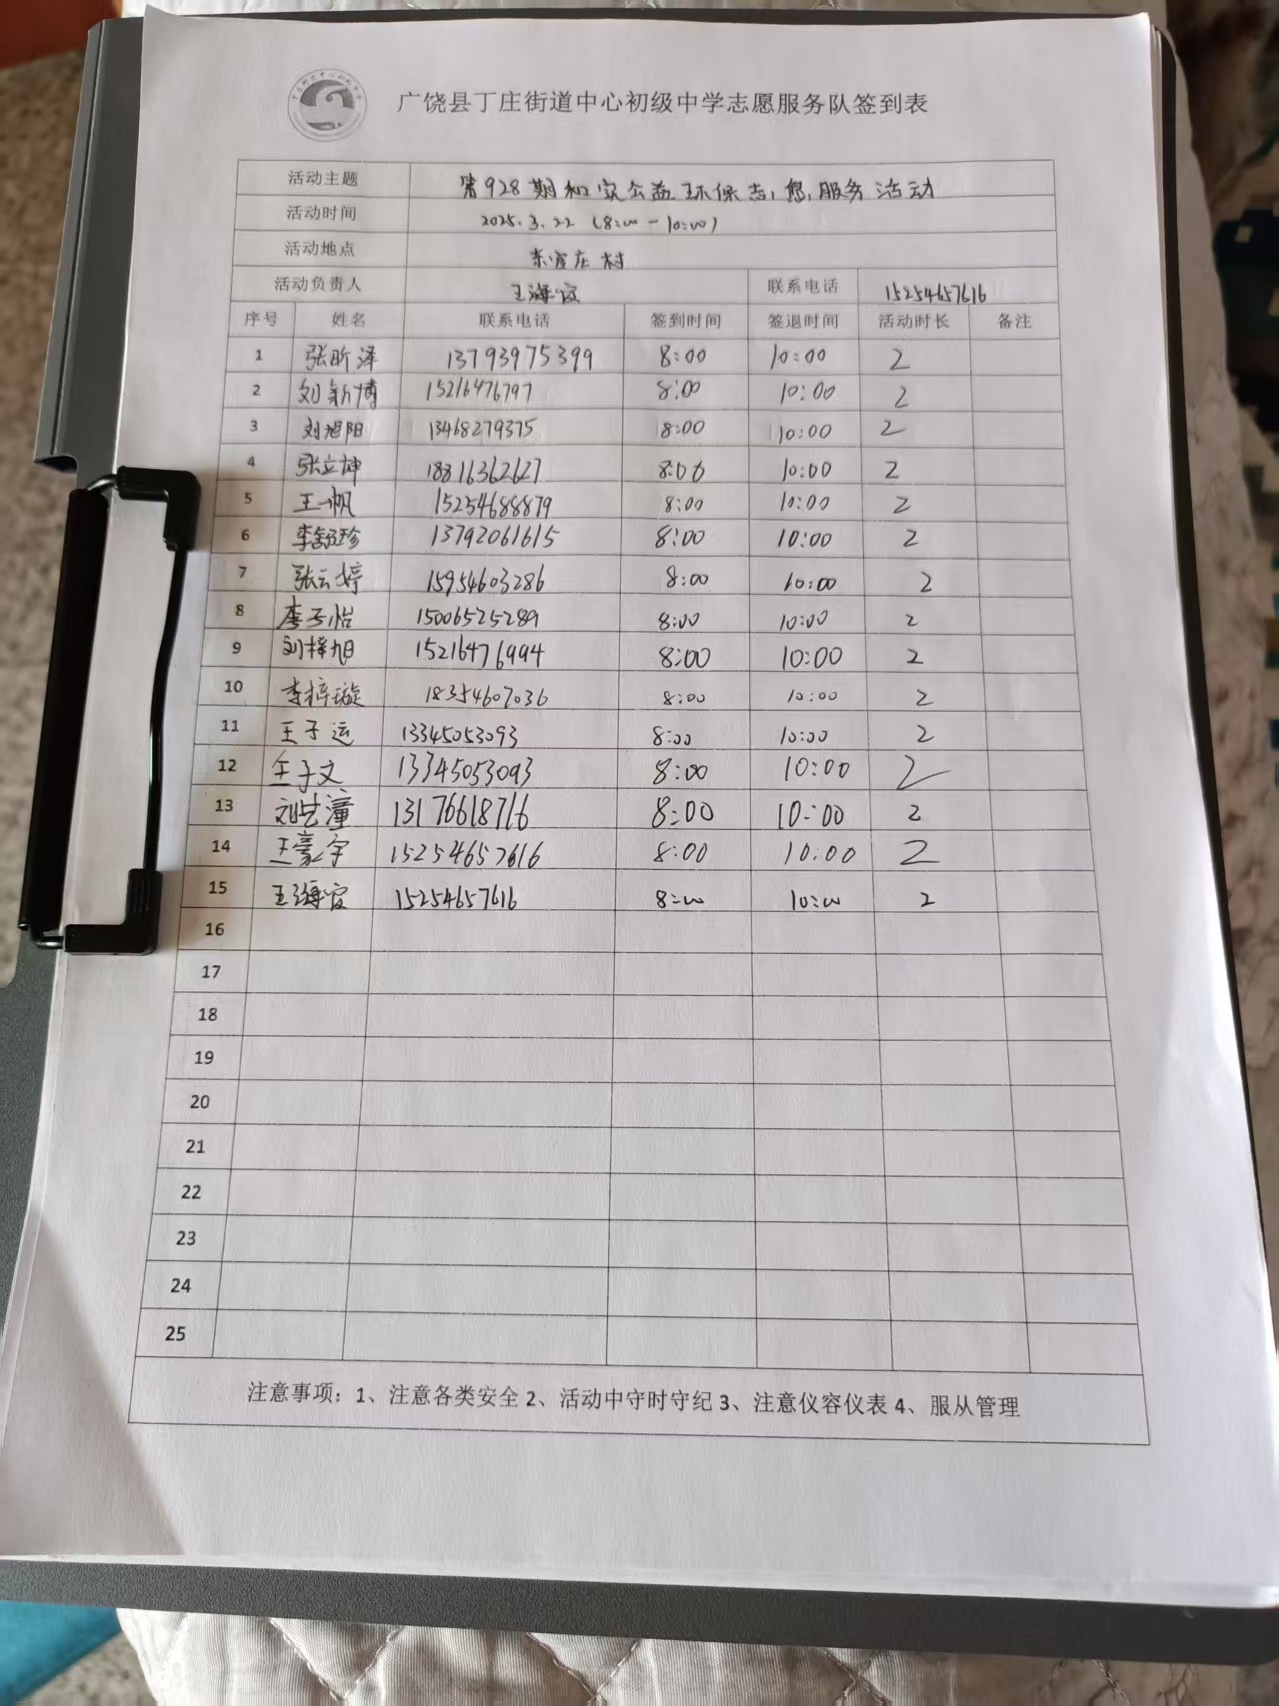 广饶县丁庄街道中心初级中学志愿服务队签到表
活动主题 第928期和安公益环保志愿服务活动
活动时间 2025.3.22 (8:00-10:00)
活动地点 东官庄村
活动负责人 王海 联系电话 15254657616
序号 姓名 联系电话 签到时间 签退时间 活动时长 备注
1 张昕泽 13793975399 8:00 10:00 2
2 刘新博 15216476797 8:00 10:00 2
3 刘旭阳 13468279375 8:00 10:00 2
4 张立坤 18816362627 8:00 10:00 2
5 王一帆 15254688879 8:00 10:00 2
6 李舒珍 13792061615 8:00 10:00 2
7 张云婷 15954603286 8:00 10:00 2
8 李子怡 15006525289 8:00 10:00 2
9 刘梓旭 15216476994 8:00 10:00 2
10 李梓璇 18354607036 8:00 10:00 2
11 王子运 13345053093 8:00 10:00 2
12 王子文 13345053093 8:00 10:00 2
13 刘艺潼 13176618716 8:00 10:00 2
14 王豪宇 15254657616 8:00 10:00 2
15 王海 15254657616 8:00 10:00 2
16
17
18
19
20
21
22
23
24
25
注意事项：1、注意各类安全 2、活动中守时守纪 3、注意仪容仪表 4、服从管理